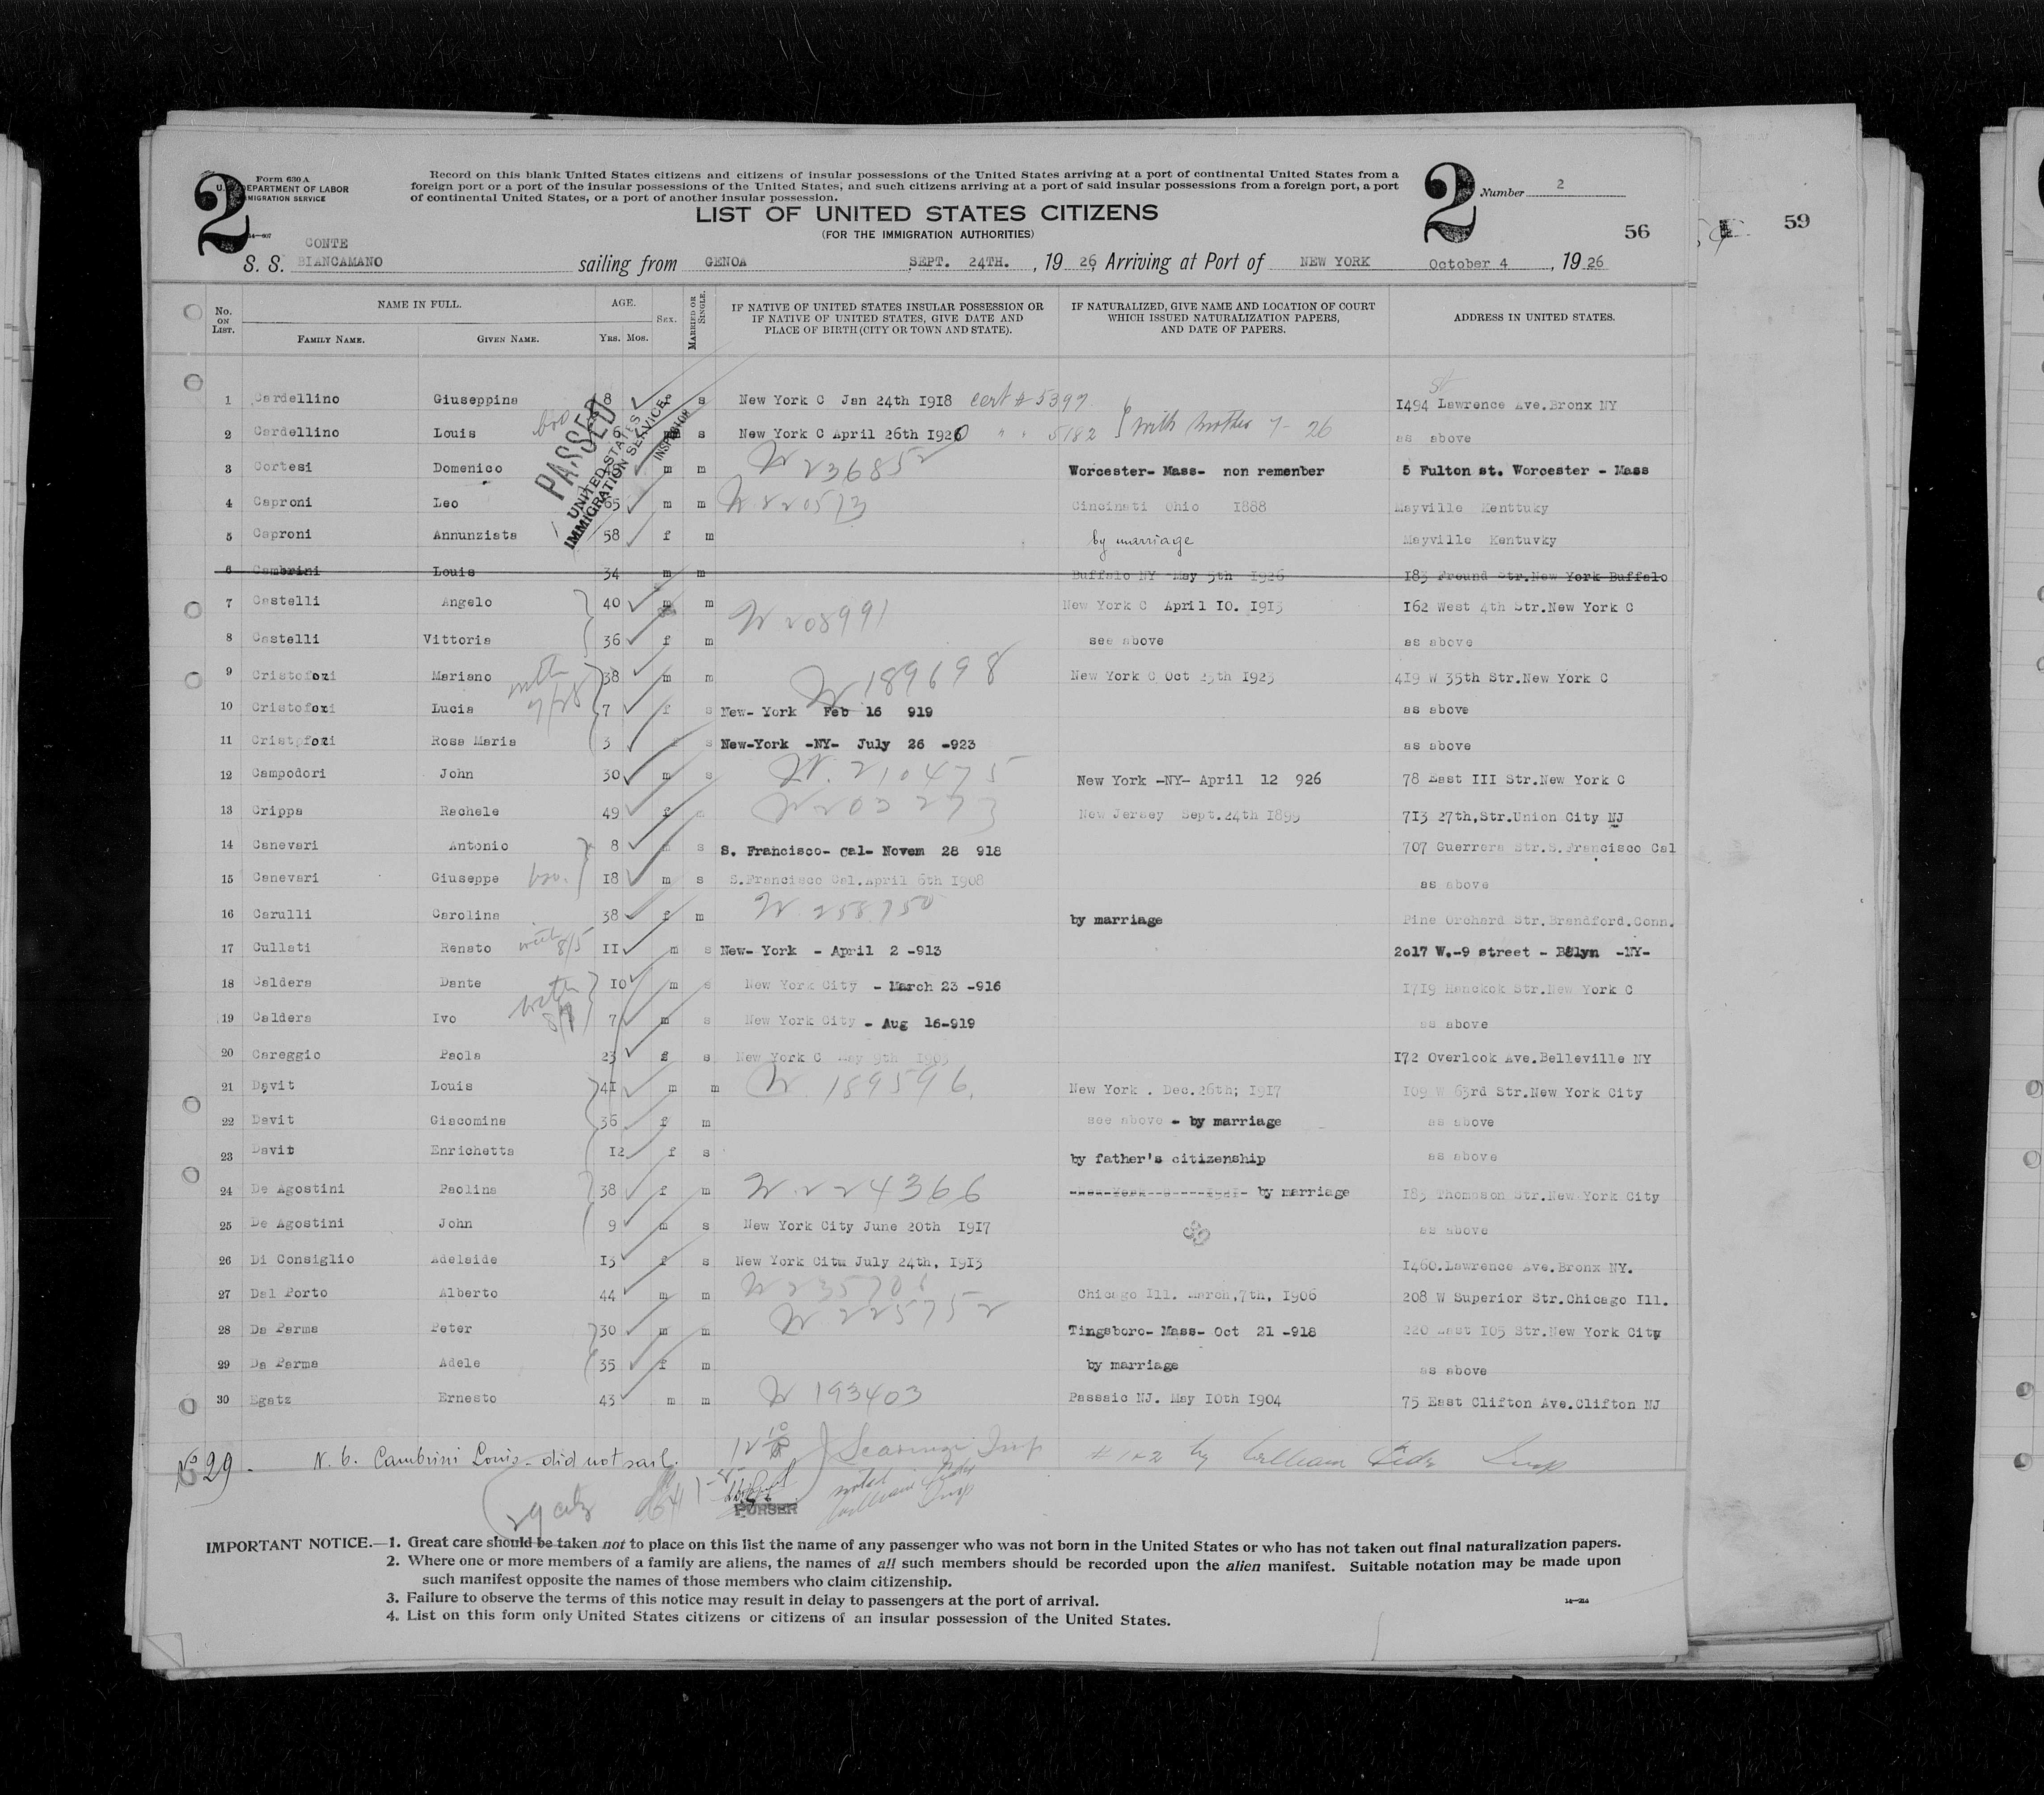 2
Form 630 A
U. S. DEPARTMENT OF LABOR
IMMIGRATION SERVICE
Record on this blank United States citizens and citizens of insular possessions of the United States arriving at a port of continental United States from a
foreign port or a port of the insular possessions of the United States, and such citizens arriving at a port of said insular possessions from a foreign port, a port
of continental United States, or a port of another insular possession.
2
Number 2
LIST OF UNITED STATES CITIZENS
(FOR THE IMMIGRATION AUTHORITIES)
56
59
S. S. CONTE BIANCAMANO sailing from GENOA SEPT. 24TH. , 19 26, Arriving at Port of NEW YORK October 4 , 19 26
No. ON LIST. NAME IN FULL. FAMILY NAME. GIVEN NAME. AGE. YRS. MOS. SEX. MARRIED OR SINGLE. IF NATIVE OF UNITED STATES INSULAR POSSESSION OR IF NATIVE OF UNITED STATES, GIVE DATE AND PLACE OF BIRTH (CITY OR TOWN AND STATE). IF NATURALIZED, GIVE NAME AND LOCATION OF COURT WHICH ISSUED NATURALIZATION PAPERS, AND DATE OF PAPERS. ADDRESS IN UNITED STATES.
PASSED
UNITED STATES
IMMIGRATION SERVICE
INSPECTOR
1 Cardellino Giuseppina 8 s New York C Jan 24th 1918 cert # 5397 1494 Lawrence Ave.Bronx NY
2 Cardellino Louis 6 m s New York C April 26th 1920 " " 5182 with mother 7- 26 as above
3 Cortesi Domenico m m N 236852 Worcester- Mass- non remenber 5 Fulton st. Worcester - Mass
4 Caproni Leo 65 m m N. 220573 Cincinati Ohio 1888 Mayville Kenttuky
5 Caproni Annunziata 58 f m by marriage Mayville Kentuvky
6 Cambrini Louis 34 m m Buffalo NY May 5th 1926 183 Freund Str.New York Buffalo
7 Castelli Angelo 40 m m N 208991 New York C April 10. 1913 162 West 4th Str.New York C
8 Castelli Vittoria 36 f m see above as above
9 Cristofori Mariano 38 m m N 189698 New York C Oct 25th 1923 419 W 35th Str.New York C
10 Cristofori Lucia 7 f s New- York Feb 16 919 as above
11 Cristofori Rosa Maria 3 f s New-York -NY- July 26 -923 as above
12 Campodori John 30 m s N. 210475 New York -NY- April 12 926 78 East III Str.New York C
13 Crippa Rachele 49 f m N 203273 New Jersey Sept.24th 1899 713 27th,Str.Union City NJ
14 Canevari Antonio 8 m s S. Francisco- Cal- Novem 28 918 707 Guerrera Str.S.Francisco Cal
15 Canevari Giuseppe bro. 18 m s S.Francisco Cal.April 6th 1908 as above
16 Carulli Carolina 38 f m N. 258.750 by marriage Pine Orchard Str.Brandford.Conn.
17 Cullati Renato with 8/5 11 m s New- York - April 2 -913 2017 W.-9 street - Bklyn -NY-
18 Caldera Dante with 10 m s New York City - March 23 -916 1719 Hanckok Str.New York C
19 Caldera Ivo 7 m s New York City - Aug 16-919 as above
20 Careggio Paola 23 f s New York C May 9th 1903 172 Overlook Ave.Belleville NY
21 Davit Louis 41 m m N. 189596. New York . Dec.26th; 1917 109 W 63rd Str.New York City
22 Davit Giacomina 36 f m see above - by marriage as above
23 Davit Enrichetta 12 f s by father's citizenship as above
24 De Agostini Paolina 38 f m N. 224366 by marriage 183 Thompson Str.New York City
25 De Agostini John 9 m s New York City June 20th 1917 as above
26 Di Consiglio Adelaide 13 f s New York Citm July 24th, 1913 1460.Lawrence Ave.Bronx NY.
27 Dal Porto Alberto 44 m m Chicago Ill. March,7th, 1906 208 W Superior Str.Chicago Ill.
28 Da Parma Peter 30 m m N 225752 Tingsboro- Mass- Oct 21 -918 220 East 105 Str.New York City
29 Da Parma Adele 35 f m by marriage as above
30 Egatz Ernesto 43 m m N 193403 Passaic NJ. May 10th 1904 75 East Clifton Ave.Clifton NJ
No 29. N. 6. Cambrini Louis - did not sail.
# 1 & 2 by William Insp
PURSER
IMPORTANT NOTICE.—1. Great care should be taken not to place on this list the name of any passenger who was not born in the United States or who has not taken out final naturalization papers.
2. Where one or more members of a family are aliens, the names of all such members should be recorded upon the alien manifest. Suitable notation may be made upon
such manifest opposite the names of those members who claim citizenship.
3. Failure to observe the terms of this notice may result in delay to passengers at the port of arrival.
4. List on this form only United States citizens or citizens of an insular possession of the United States.